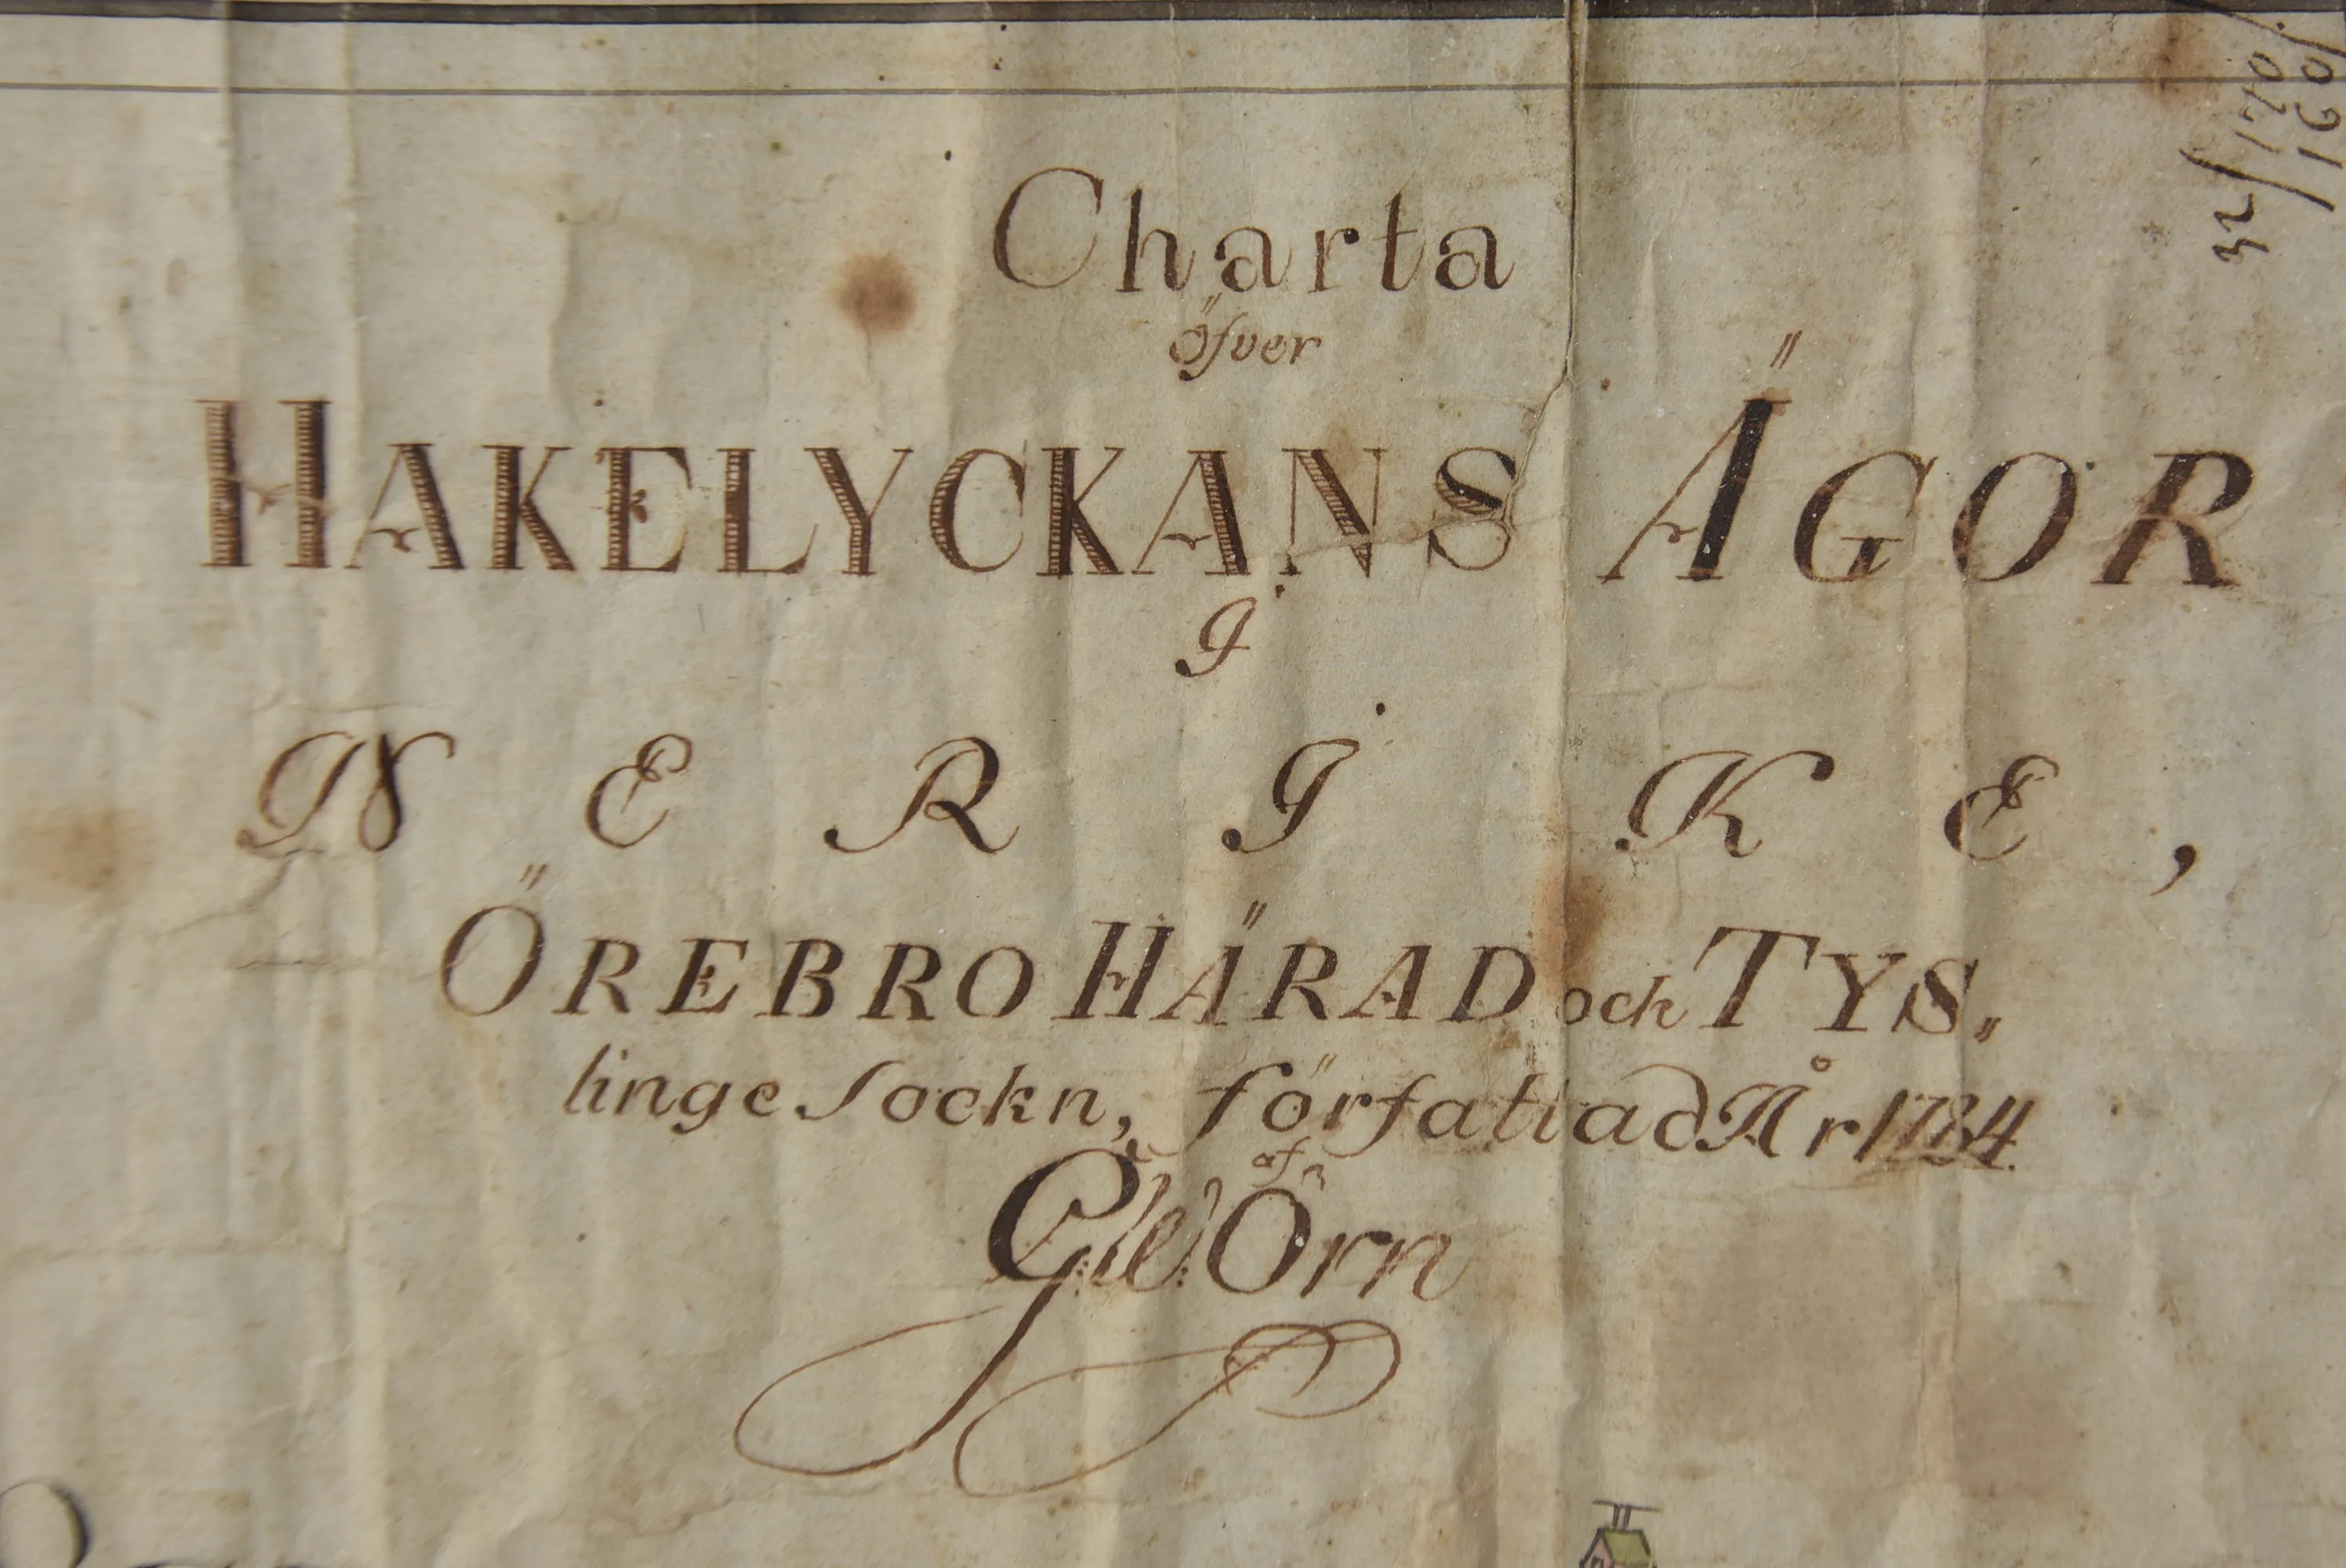 Charta
öfver
HAKELYCKANS ÄGOR
I
NERIKE,
ÖREBRO HÄRAD och TYS„
linge Sockn, författad År 1784.
af
G:W: Örn